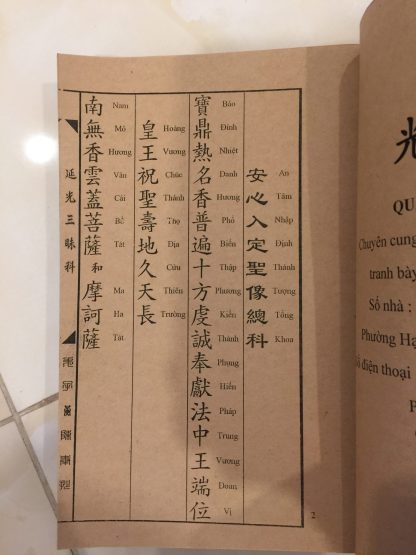 安心入定聖像總科
An Tâm Nhập Định Thánh Tượng Tổng Khoa
寶鼎熱名香普遍十方虔誠奉獻法中王端位
Bảo Đỉnh Nhiệt Danh Hương Phổ Biến Thập Phương Kiền Thành Phụng Hiến Pháp Trung Vương Đoan Vị
皇王祝聖壽地久天長
Hoàng Vương Chúc Thánh Thọ Địa Cửu Thiên Trường
南無香雲蓋菩薩和摩訶薩
Nam Mô Hương Vân Cái Bồ Tát Ma Ha Tát
延光三昧科
2
光
QU
Chuyên cung
tranh bày
Số nhà :
Phường Hạ
điện thoại